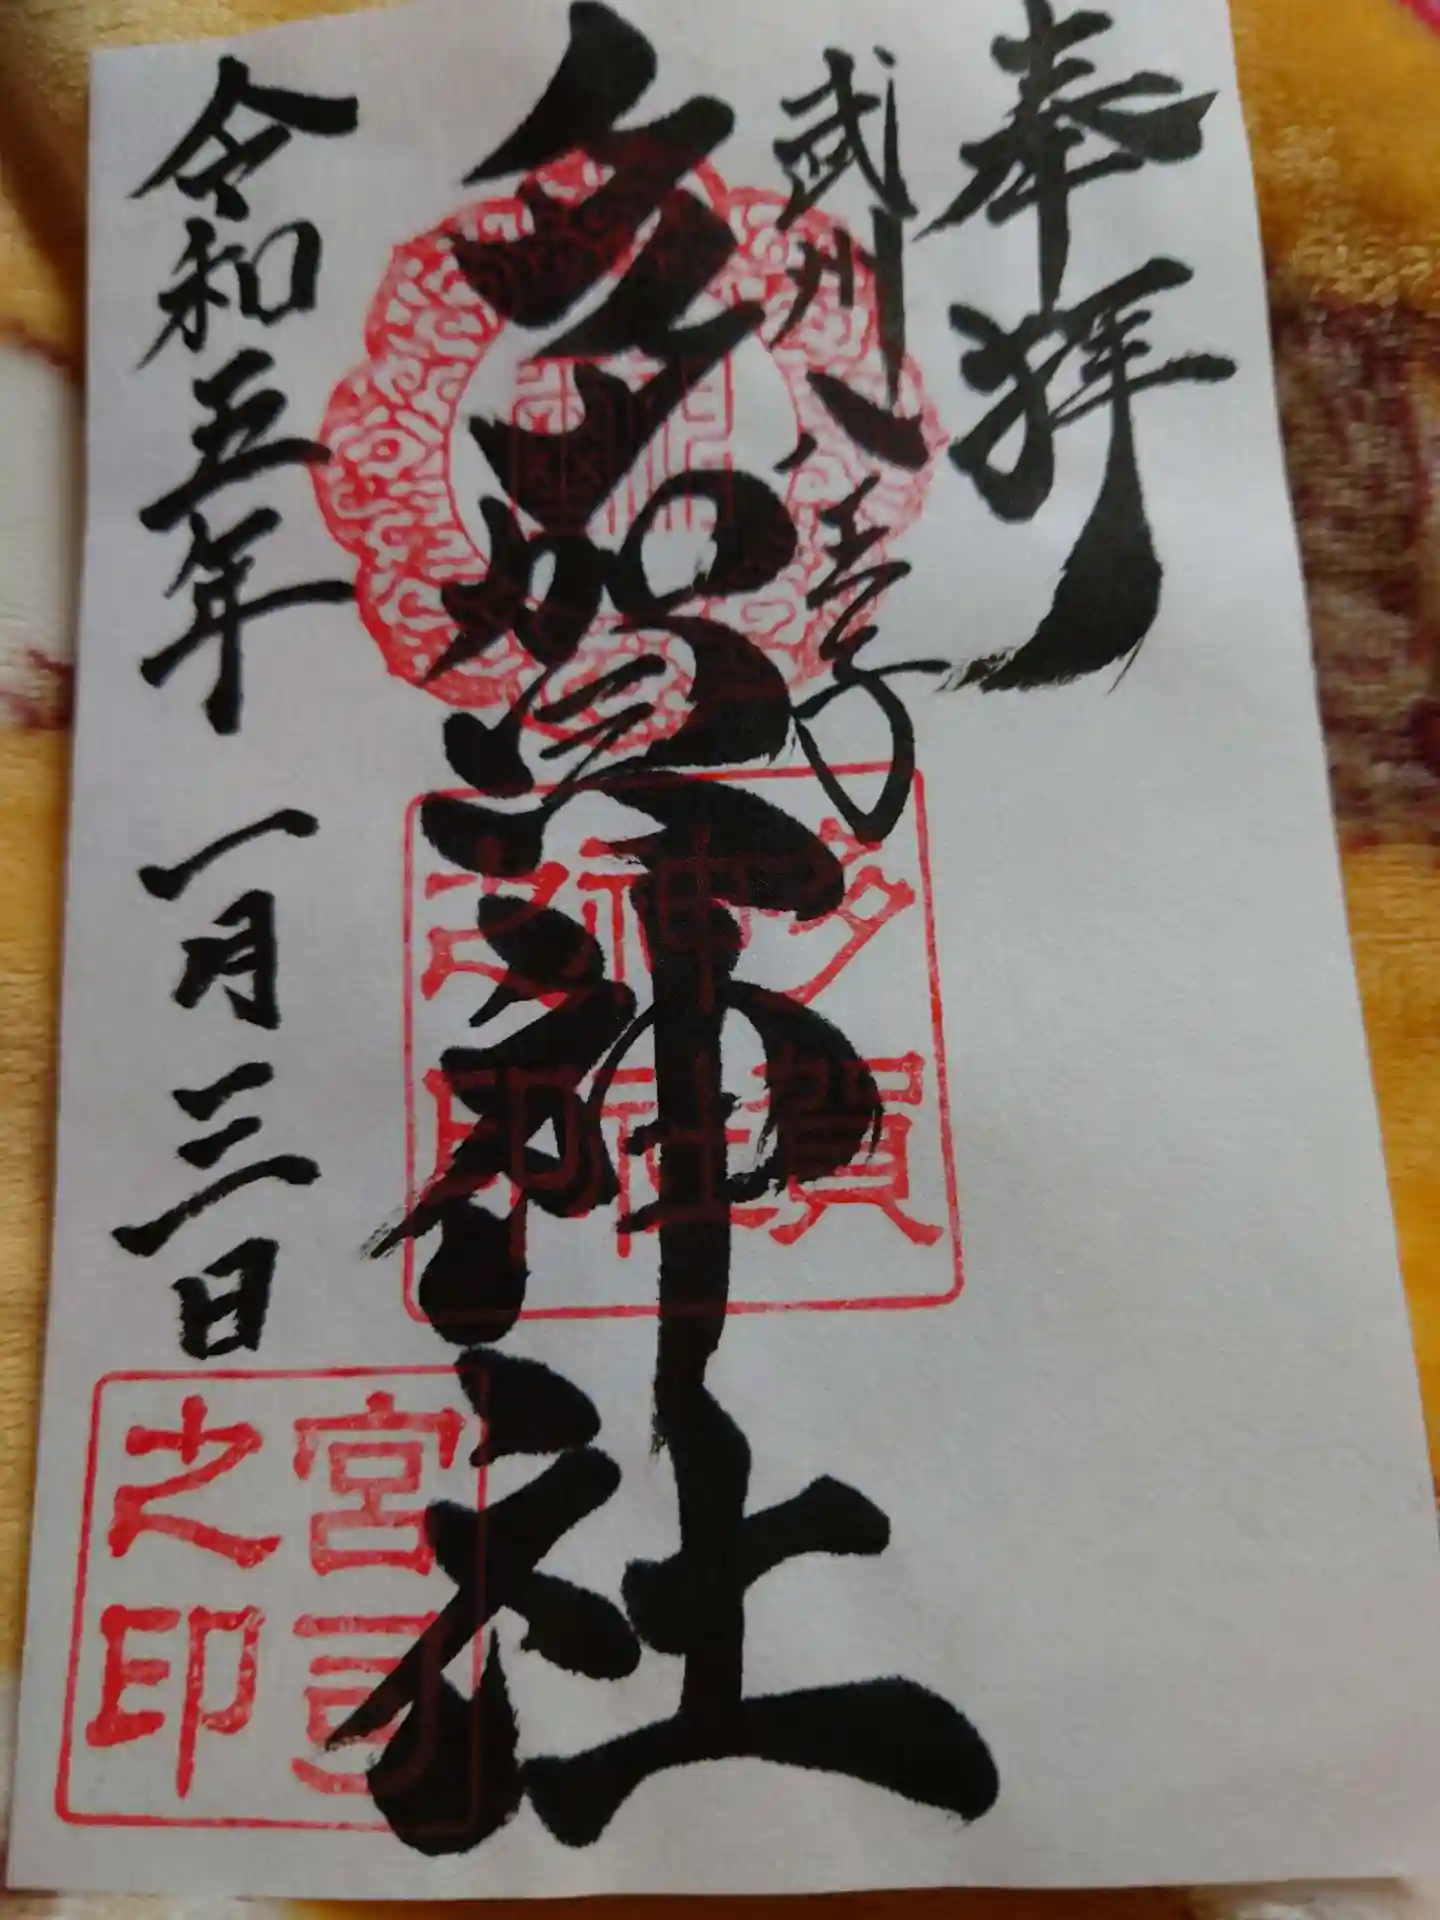 奉拝
武州八王子
多賀神社
令和五年一月三日
多賀
神社
之印
宮司
之印